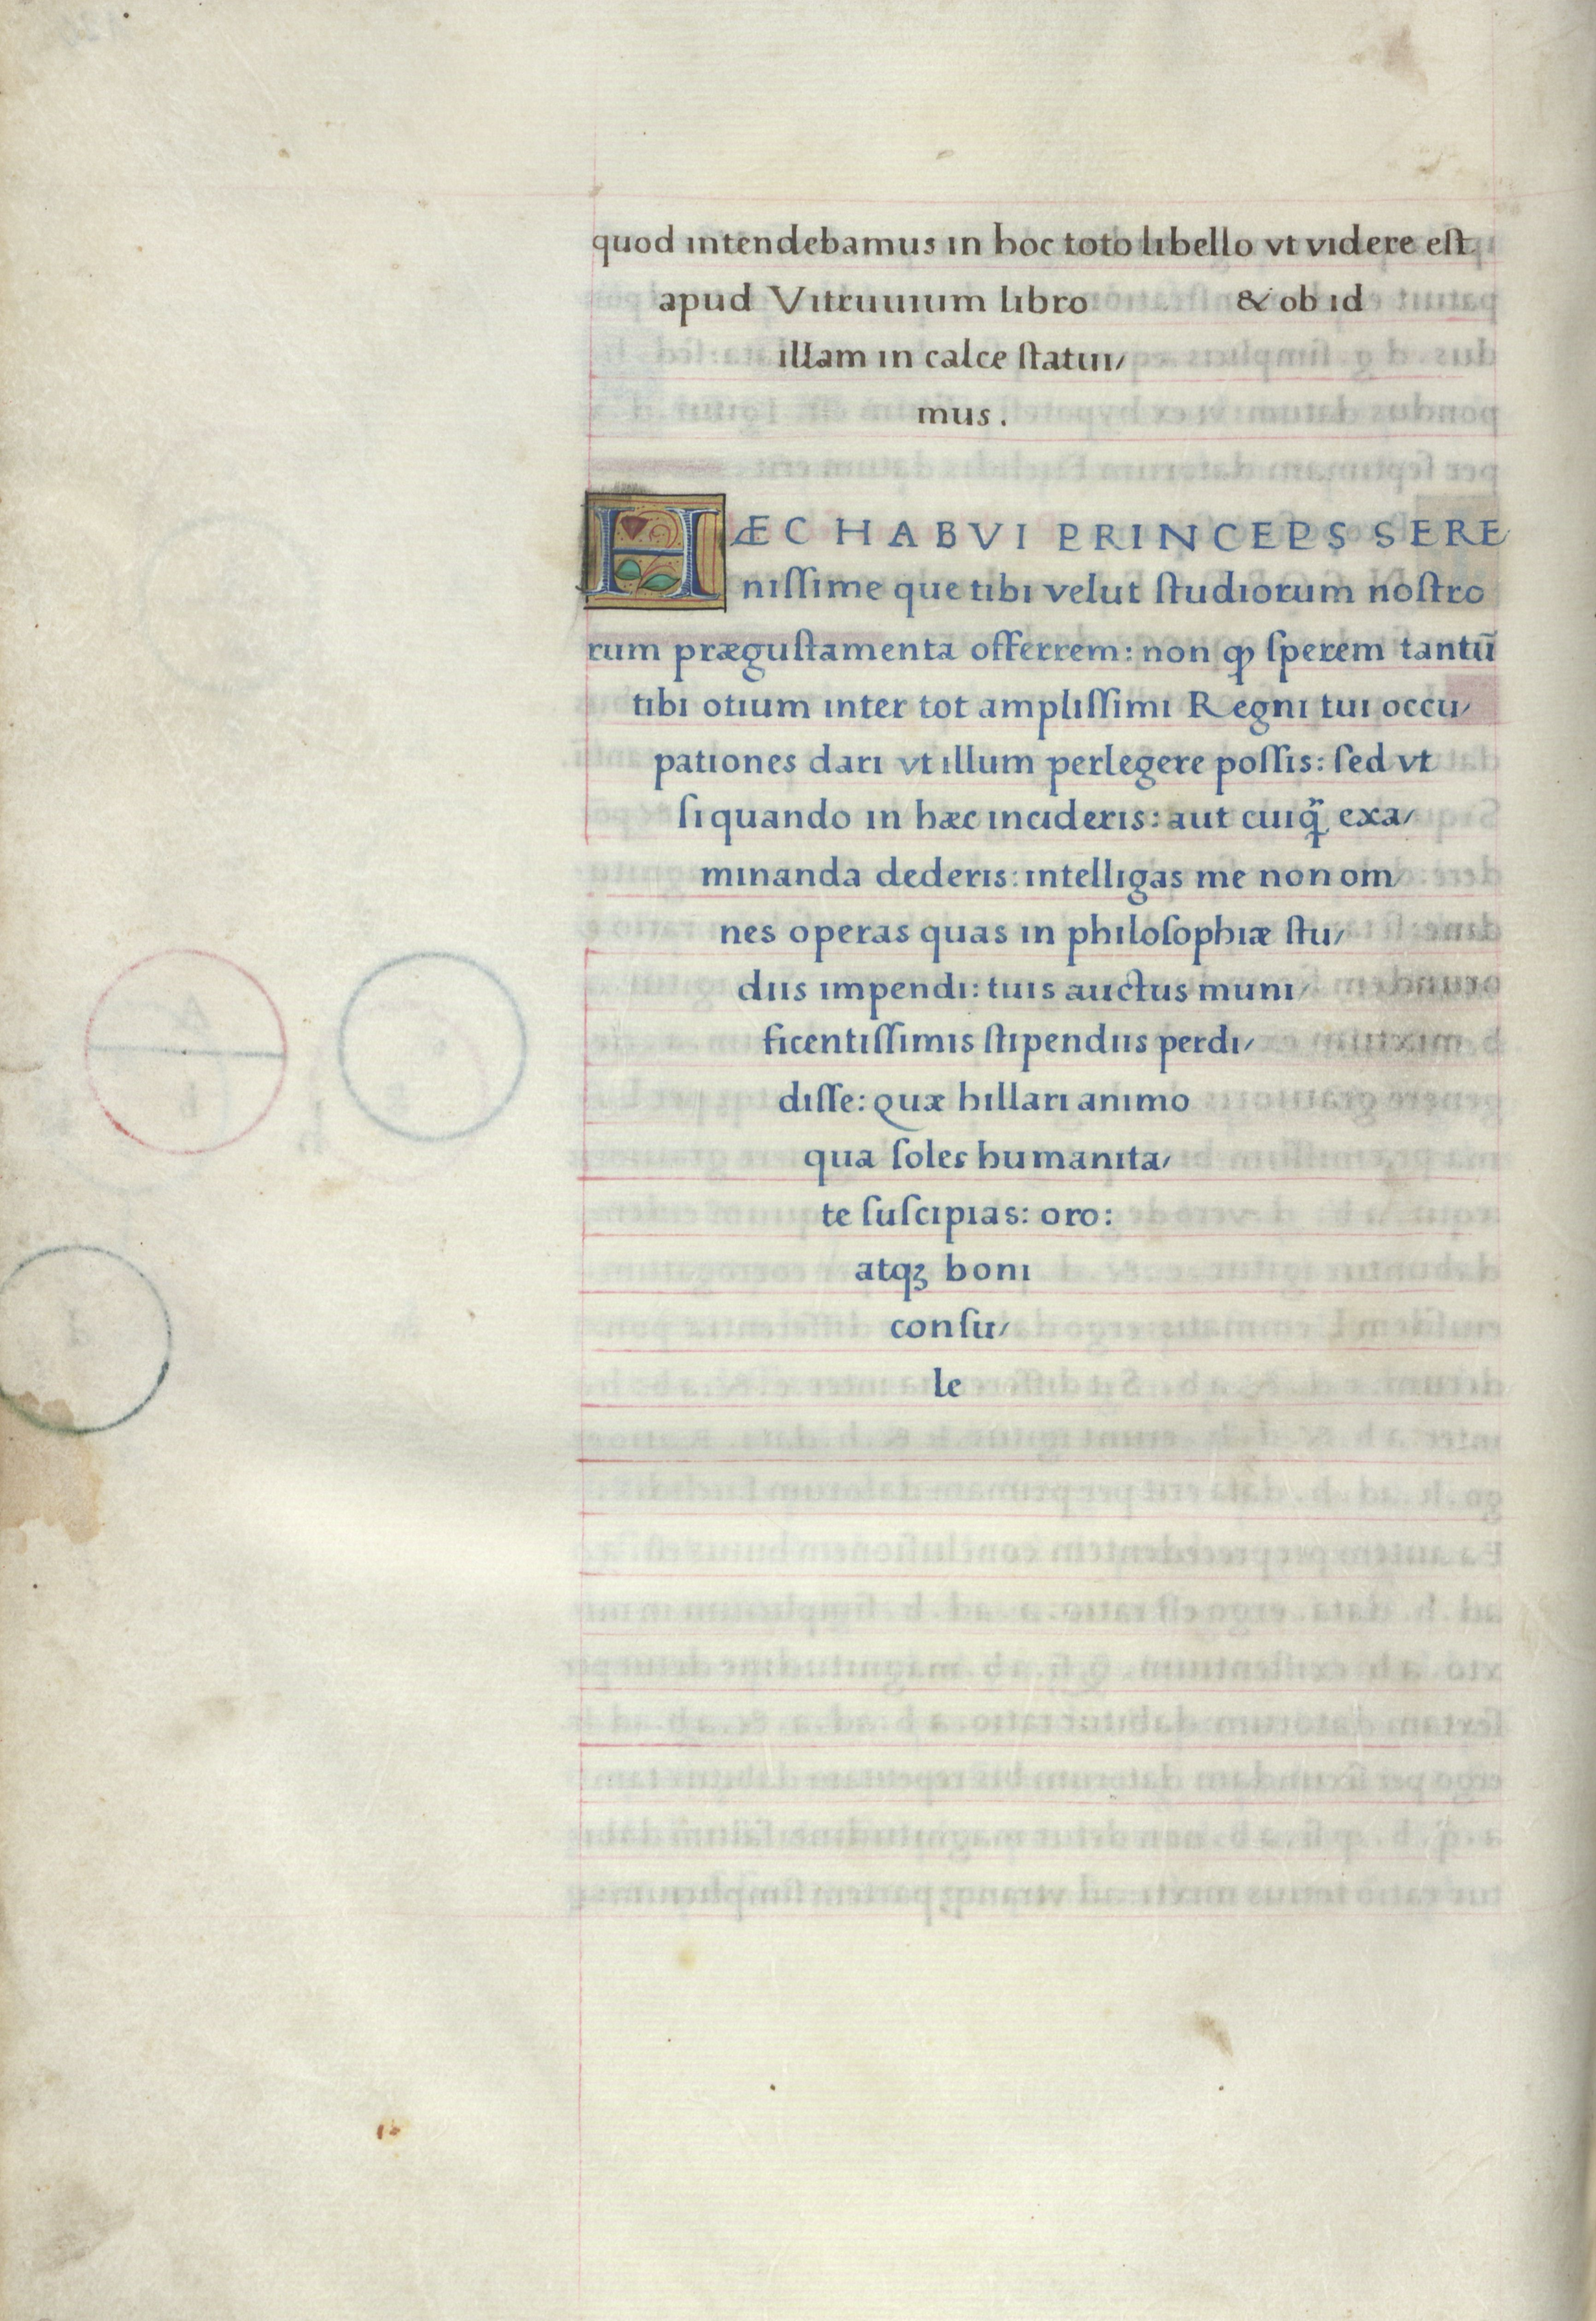 quod intendebamus in hoc toto libello vt videre eſt
apud Vitruuium libro & ob id
illam in calce ſtatui/
mus.
HÆC HABVI PRINCEPS SERE
niſſime que tibi velut ſtudiorum noſtro
rum præguſtamenta offerrem: non ꝙ ſperem tantū
tibi otium inter tot ampliſſimi Regni tui occu/
pationes dari vt illum perlegere poſſis: ſed vt
ſi quando in hæc incideris: aut cuiq̃ exa/
minanda dederis: intelligas me non om/
nes operas quas in philoſophiæ ſtu/
diis impendi: tuis auctus muni/
ficentiſſimis ſtipendiis perdi/
diſſe: Quæ hillari animo
qua ſoles humanita/
te ſuſcipias: oro:
atqꝫ boni
conſu/
le